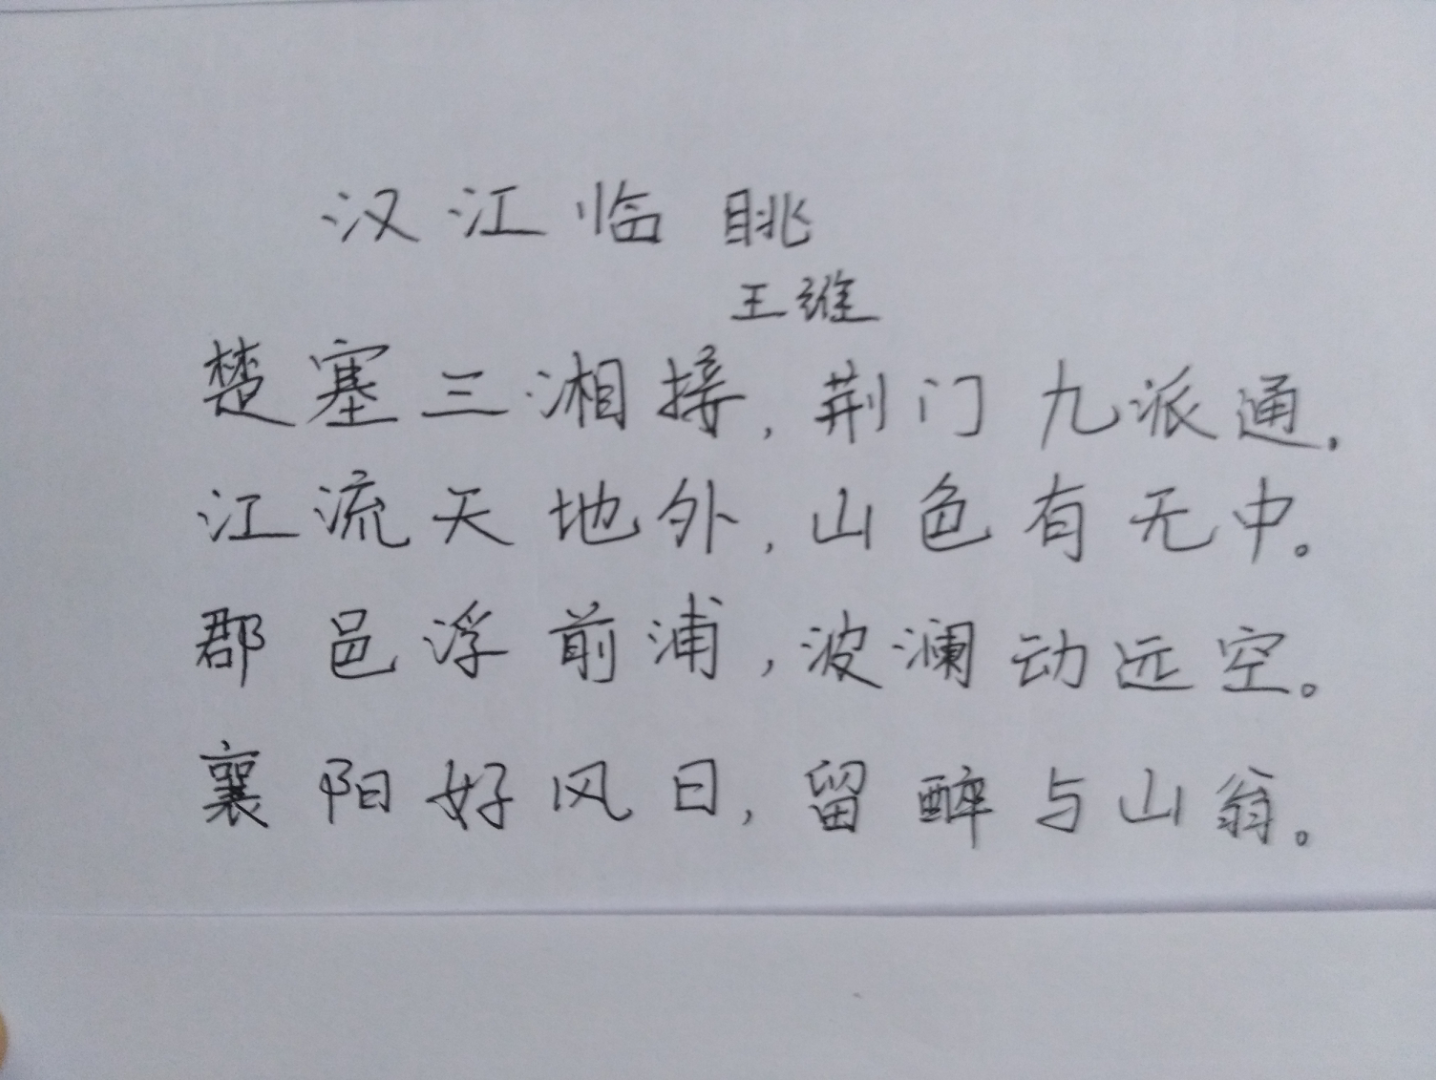 汉江临眺
王维
楚塞三湘接，荆门九派通．
江流天地外，山色有无中。
郡邑浮前浦，波澜动远空。
襄阳好风日，留醉与山翁。